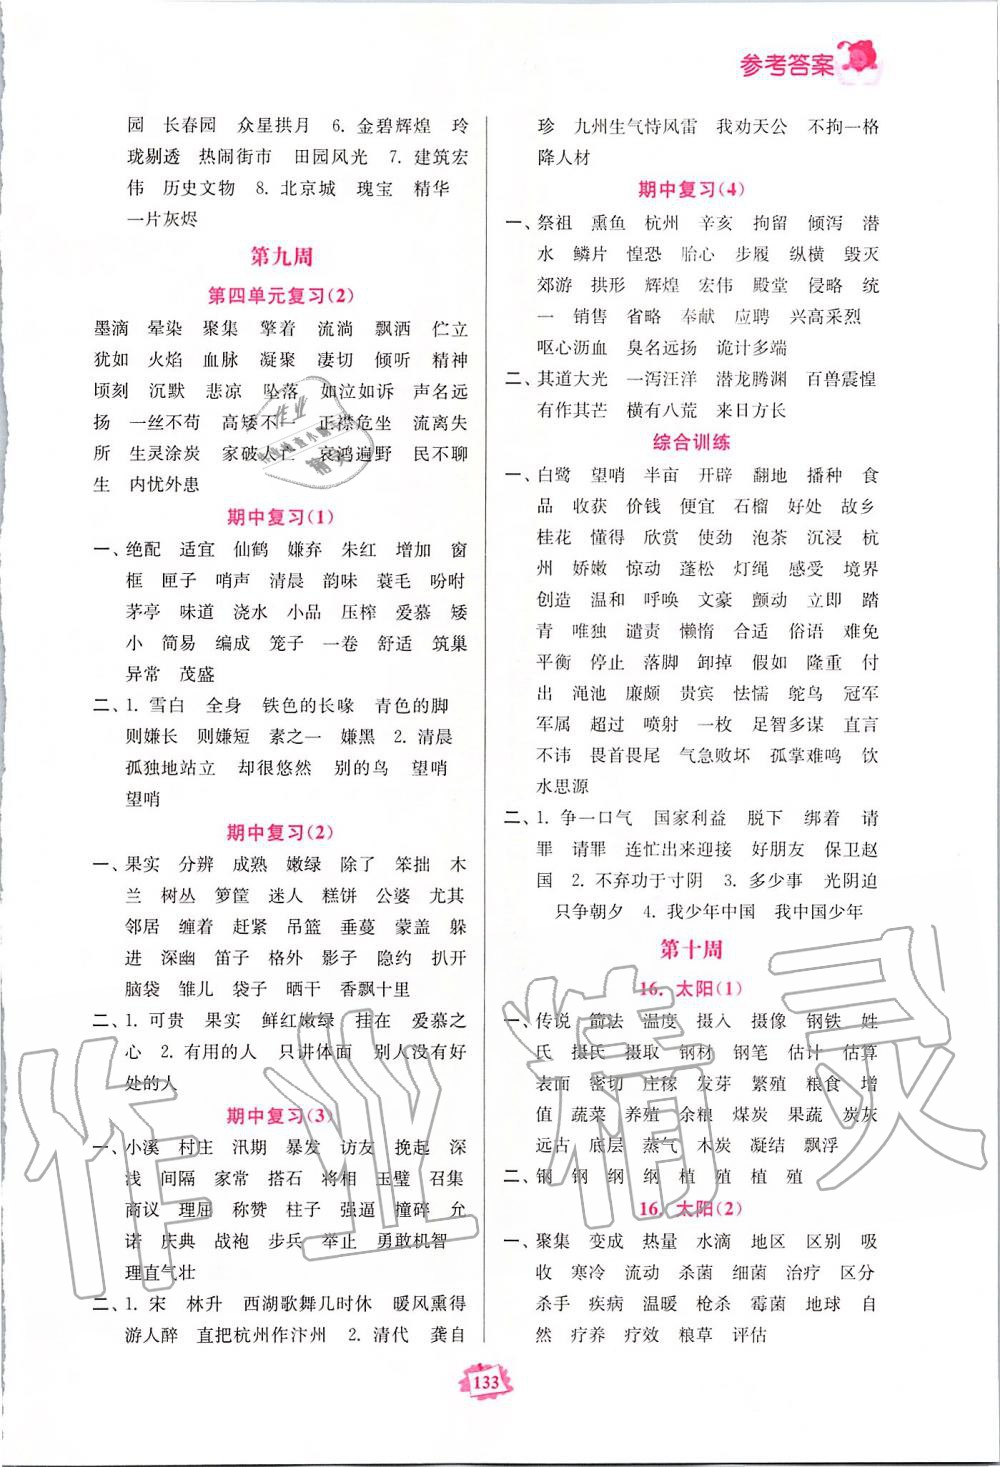 参考答案
园 长春园 众星拱月 6. 金碧辉煌 玲
珑剔透 热闹街市 田园风光 7. 建筑宏
伟 历史文物 8. 北京城 瑰宝 精华
一片灰烬
第九周
第四单元复习(2)
墨滴 晕染 聚集 擎着 流淌 飘洒 伫立
犹如 火焰 血脉 凝聚 凄切 倾听 精神
顷刻 沉默 悲凉 坠落 如泣如诉 声名远
扬 一丝不苟 高矮不一 正襟危坐 流离失
所 生灵涂炭 家破人亡 哀鸿遍野 民不聊
生 内忧外患
期中复习(1)
一、绝配 适宜 仙鹤 嫌弃 朱红 增加 窗
框 匣子 哨声 清晨 韵味 蓑毛 吩咐
茅亭 味道 浇水 小品 压榨 爱慕 矮
小 简易 编成 笼子 一卷 舒适 筑巢
异常 茂盛
二、1. 雪白 全身 铁色的长喙 青色的脚
则嫌长 则嫌短 素之一 嫌黑 2. 清晨
孤独地站立 却很悠然 别的鸟 望哨
望哨
期中复习(2)
一、果实 分辨 成熟 嫩绿 除了 笨拙 木
兰 树丛 箩筐 迷人 糕饼 公婆 尤其
邻居 缠着 赶紧 吊篮 垂蔓 蒙盖 躲
进 深幽 笛子 格外 影子 隐约 扒开
脑袋 雏儿 袋子 晒干 香飘十里
二、1. 可贵 果实 鲜红嫩绿 挂在 爱慕之
心 2. 有用的人 只讲体面 对别人没有好
处的人
期中复习(3)
一、小溪 村庄 汛期 暴发 访友 挽起 深
浅 间隔 家常 搭石 将相 玉璧 召集
商议 理屈 称赞 柱子 强逼 撞碎 允
诺 庆典 战袍 步兵 举止 勇敢机智
理直气壮
二、1. 宋 林升 西湖歌舞几时休 暖风熏得
游人醉 直把杭州作汴州 2. 清代 龚自
珍 九州生气恃风雷 我劝天公 不拘一格
降人材
期中复习(4)
一、祭祖 熏鱼 杭州 辛亥 拘留 倾泻 潜
水 鳞片 惶恐 胎心 步履 纵横 毁灭
郊游 拱形 辉煌 宏伟 殿堂 侵略 统
一 销售 省略 奉献 应聘 兴高采烈
呕心沥血 臭名远扬 诡计多端
二、其道大光 一泻汪洋 潜龙腾渊 百兽震惶
有作其芒 横有八荒 来日方长
综合训练
一、白鹭 望哨 半亩 开辟 翻地 播种 食
品 收获 价钱 便宜 石榴 好处 故乡
桂花 懂得 欣赏 使劲 泡茶 沉浸 杭
州 娇嫩 惊动 蓬松 灯绳 感受 境界
创造 温和 呼唤 文豪 颤动 立即 踏
青 唯独 谴责 懒惰 合适 俗语 难免
平衡 停止 落脚 卸掉 假如 隆重 付
出 渑池 廉颇 贵宾 怯懦 鸵鸟 冠军
军属 超过 喷射 一枚 足智多谋 直言
不讳 畏首畏尾 气急败坏 孤掌难鸣 饮
水思源
二、1. 争一口气 国家利益 脱下 绑着 请
罪 请罪 连忙出来迎接 好朋友 保卫赵
国 2. 不弃功于寸阴 3. 多少事 光阴迫
只争朝夕 4. 我少年中国 我中国少年
第十周
16. 太阳(1)
一、传说 箭法 温度 摄入 摄像 钢铁 姓
氏 摄氏 摄取 钢材 钢笔 估计 估算
表面 密切 庄稼 发芽 繁殖 粮食 增
值 蔬菜 养殖 余粮 煤炭 果蔬 炭灰
远古 底层 蒸气 木炭 凝结 飘浮
二、钢 钢 纲 纲 植 殖 植 殖
16. 太阳(2)
一、聚集 变成 热量 水滴 地区 区别 吸
收 寒冷 流动 杀菌 细菌 治疗 区分
杀手 疾病 温暖 枪杀 霉菌 地球 自
然 疗养 疗效 粮草 评估
133